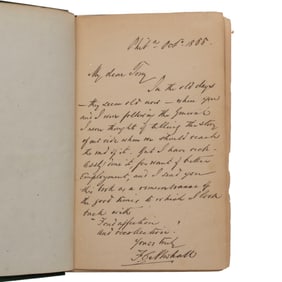 Phila Oct. 1865.
My dear Tom
In the old days
— they seem old now — when you
and I were following the General
I never thought of telling the story
of our ride when we should reach
the end of it. But I have
it for want of better
employment, and I send you
this book as a remembrance of
the good times to which I look
back with
"Fond affection
and recollection."
Yours truly